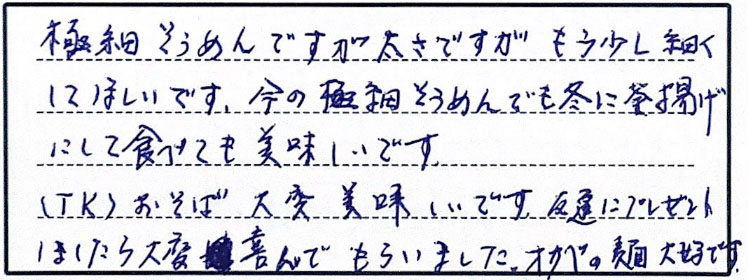 極細そうめんですが太さですがもう少し細く
してほしいです、今の極細そうめんでも冬に釜揚げ
にして食べても美味しいです
(TK)おそば大変美味しいです。友達にプレゼント
しましたら大変喜んでもらいました。オカベの麺大好です